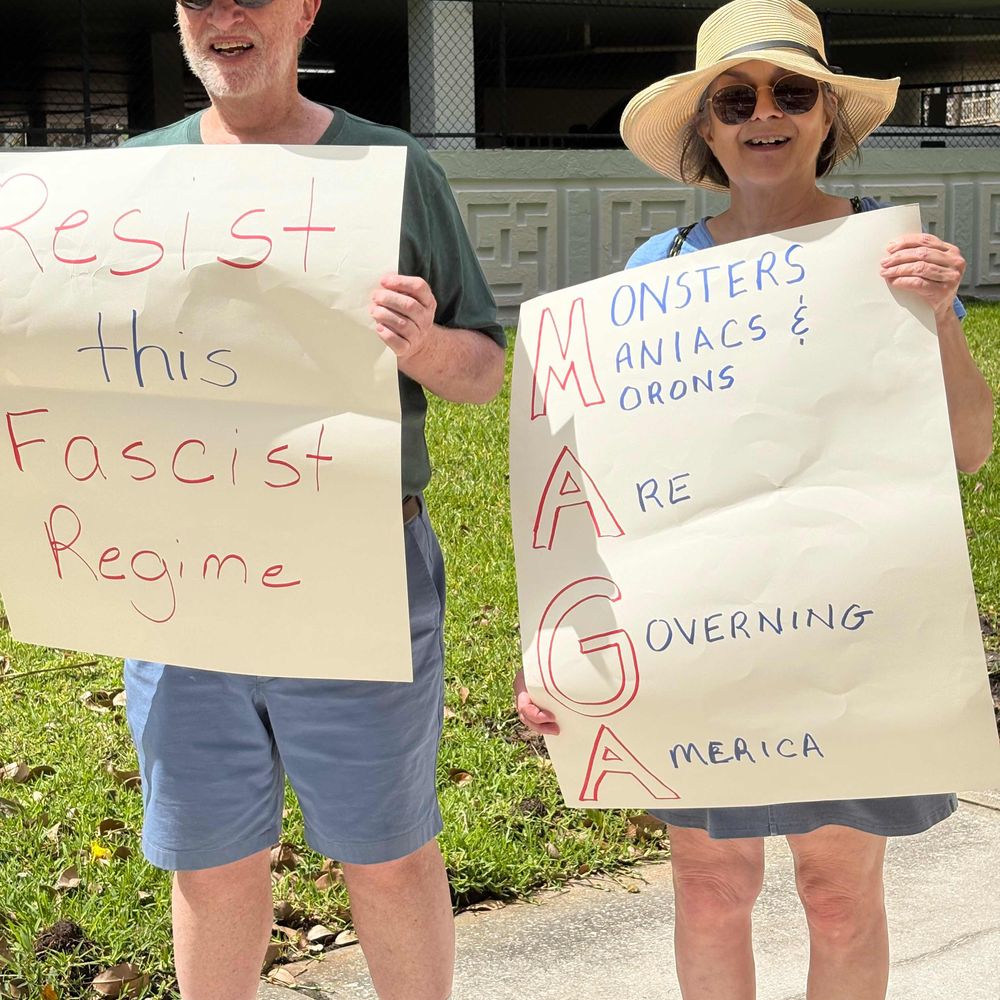 Resist
this
Fascist
Regime
MONSTERS
ANIACS &
ORONS
ARE
GOVERNING
AMERICA